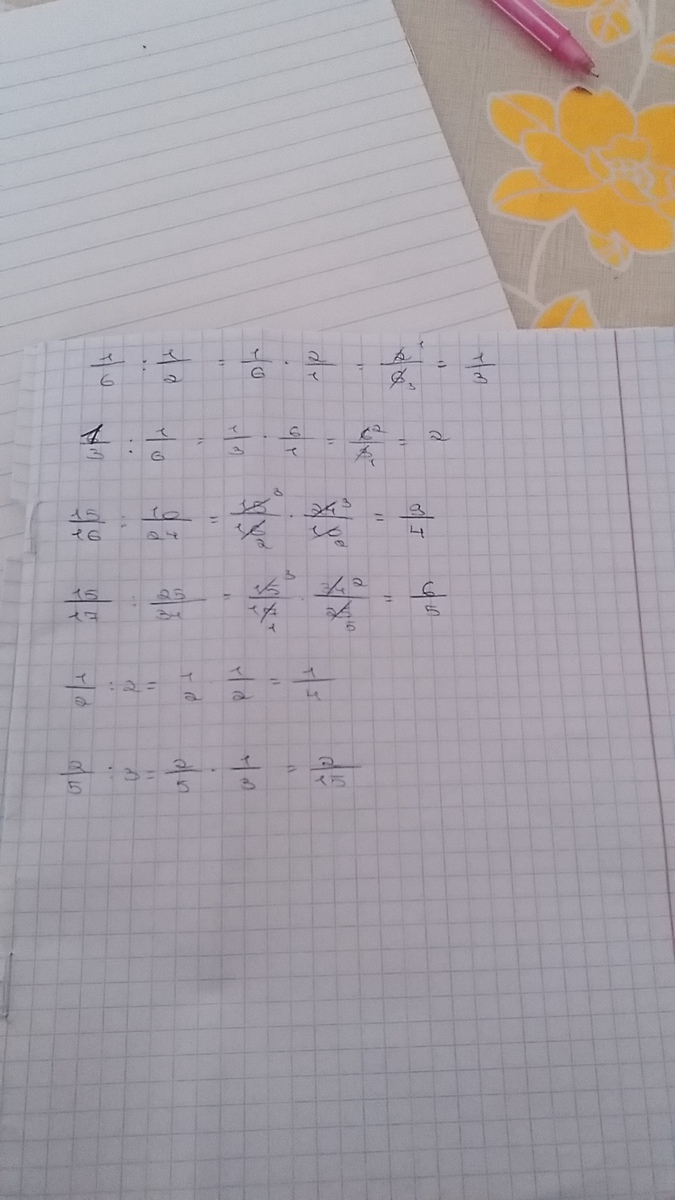 1/6 : 1/2 = 1/6 · 2/1 = 2̸ 1/6̸ 3 = 1/3
1/3 : 1/6 = 1/3 · 6/1 = 6̸ 2/3̸ 1 = 2
15/16 : 10/24 = 1̸5̸ 3/1̸6̸ 2 · 2̸4̸ 3/1̸0̸ 2 = 9/4
15/17 : 25/34 = 1̸5̸ 3/1̸7̸ 1 · 3̸4̸ 2/2̸5̸ 5 = 6/5
1/2 : 2 = 1/2 · 1/2 = 1/4
2/5 : 3 = 2/5 · 1/3 = 2/15